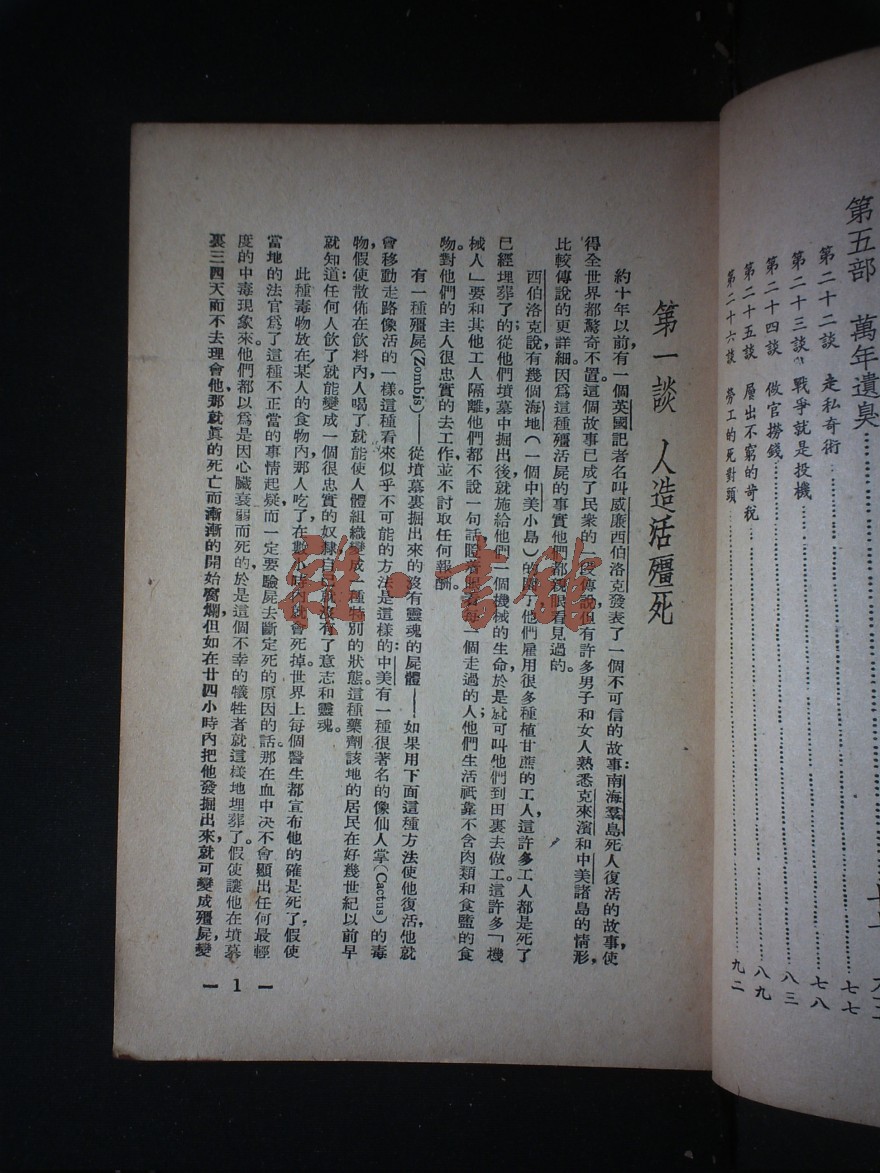 第五部　萬年遺臭
第二十二談　走私奇術
七七
第二十三談　戰爭就是投機
七八
第二十四談　做官撈錢
八三
第二十五談　層出不窮的苛稅
八九
第二十六談　勞工的死對頭
九二
第一談　人造活殭死
約十年以前，有一個英國記者名叫威廉西伯洛克發表了一個不可信的故事：南海羣島死人復活的故事，使
得全世界都驚奇不置。這個故事已成了民衆的一段傳說，但有許多男子和女人熟悉克來濱和中美諸島的情形，
比較傳說的更詳細。因爲這種殭活屍的事實他們都親眼看見過的。
西伯洛克說，有幾個海地（一個中美小島）的
他們雇用很多種植甘蔗的工人，這許多工人都是死了
已經埋葬了的，從他們墳墓中掘出後，就施給他們一個機械的生命，於是就可叫他們到田裏去做工。這許多「機
械人」要和其他工人隔離，他們都不說一句話，
着每一個走過的人；他們生活祇靠不含肉類和食鹽的食
物。對他們的主人很忠實的去工作，並不討取任何報酬。
有一種殭屍(Zombis)——從墳墓裏掘出來的沒有靈魂的屍體——如果用下面這種方法使他復活，他就
會移動走路像活的一樣。這種看來似乎不可能的方法是這樣的：中美有一種很著名的像仙人掌(Cactus)的毒
物，假使散佈在飲料內，人喝了就能使人體組織變成一種特別的狀態。這種藥劑該地的居民在好幾世紀以前早
就知道：任何人飲了就能變成一個很忠實的奴隸，自己就沒有了意志和靈魂。
此種毒物放在某人的食物內，那人吃了在數小時內就會死掉。世界上每個醫生都宣布他的確是死了，假使
當地的法官爲了這種不正當的事情起疑，而一定要驗屍去斷定死的原因的話，那在血中决不會顯出任何最輕
度的中毒現象來。他們都以爲是因心臟衰弱而死的，於是這個不幸的犧牲者就這樣地埋葬了。假使讓他在墳墓
裏三四天而不去理會他，那就眞的死亡而漸漸的開始腐爛，但如在廿四小時內把他發掘出來，就可變成殭屍，變
— 1 —
雜·書館